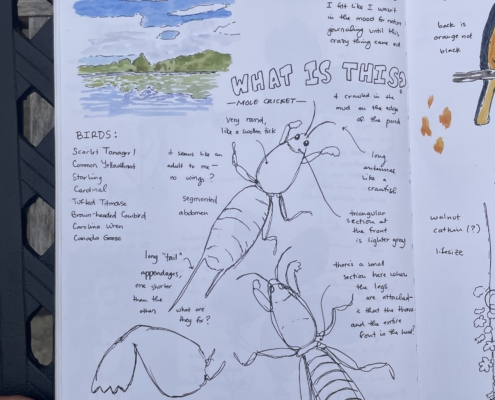 I felt like I wasn't
in the mood for nature
journaling until this
crazy thing came out
back is
orange not
black
WHAT IS THIS?
—MOLE CRICKET—
very round,
like a wolfin tick
it crawled in the
mud on the edge
of the pond
BIRDS:
Scarlet Tanager!
Common Yellowthroat
Starling
Cardinal
Tufted Titmouse
Brown-headed Cowbird
Carolina Wren
Canada Goose
it seems like an
adult to me —
no wings?
segmented
abdomen
long
antennae
like a
crawfish
triangular
section at
the front
is lighter gray
walnut
catkin (?)
lifesize
long "tail"
appendages,
one shorter
than the
other
what are
they for?
there's a small
section here where
the legs
are attached—
is that the thorax
and the entire
front is the head?